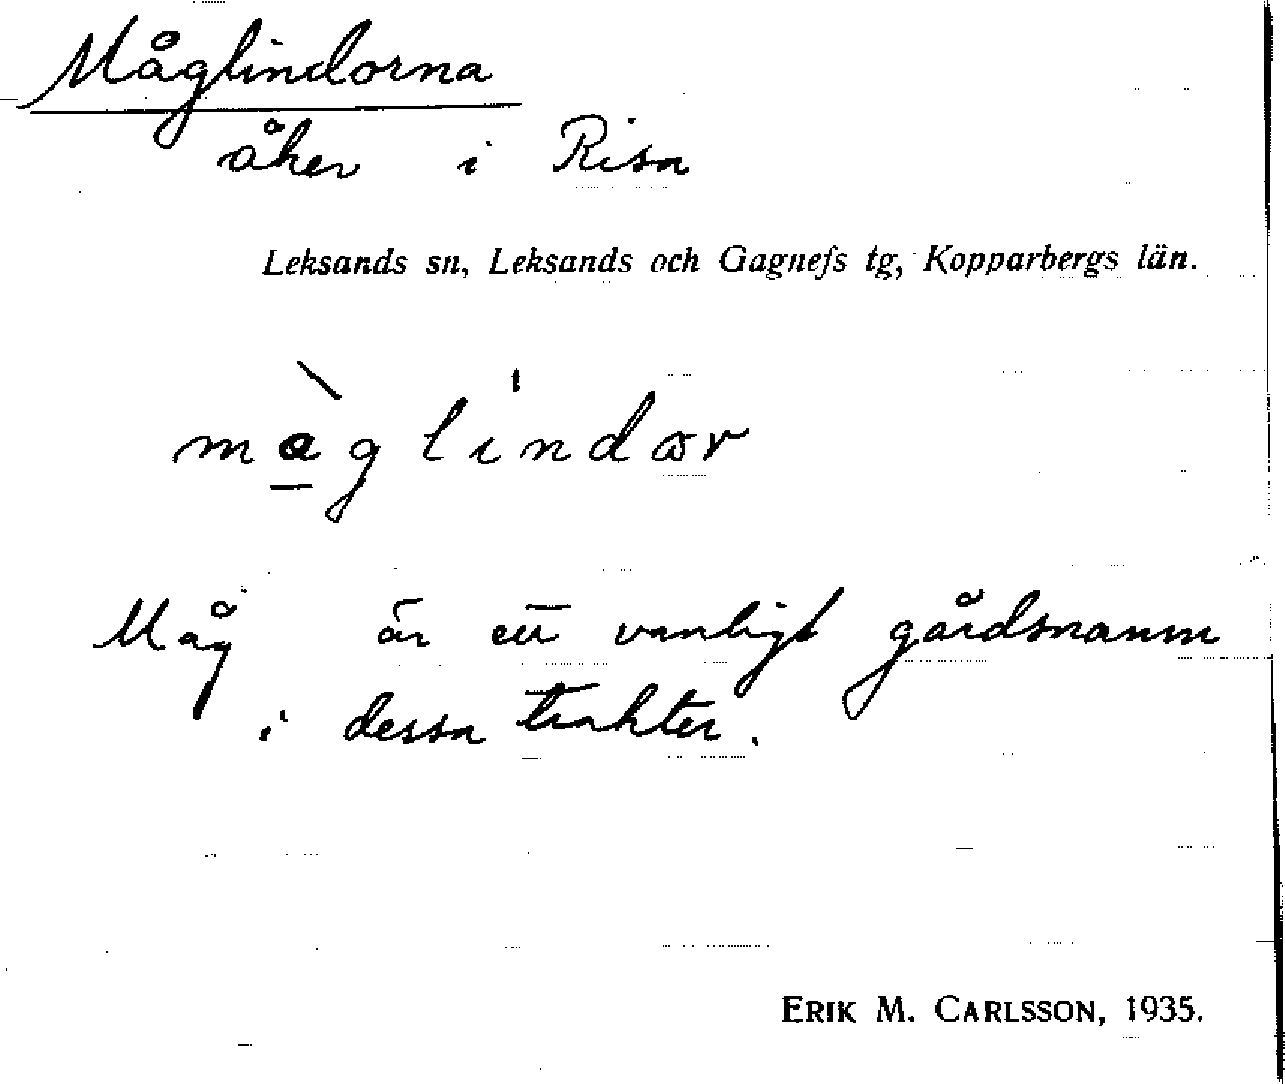 Måglindorna
åker i Risa
Leksands sn, Leksands och Gagnefs tg, Kopparbergs län.
mà̱glindær
Måg är ett vanligt gårdsnamn
i dessa trakter.
ERIK M. CARLSSON, 1935.